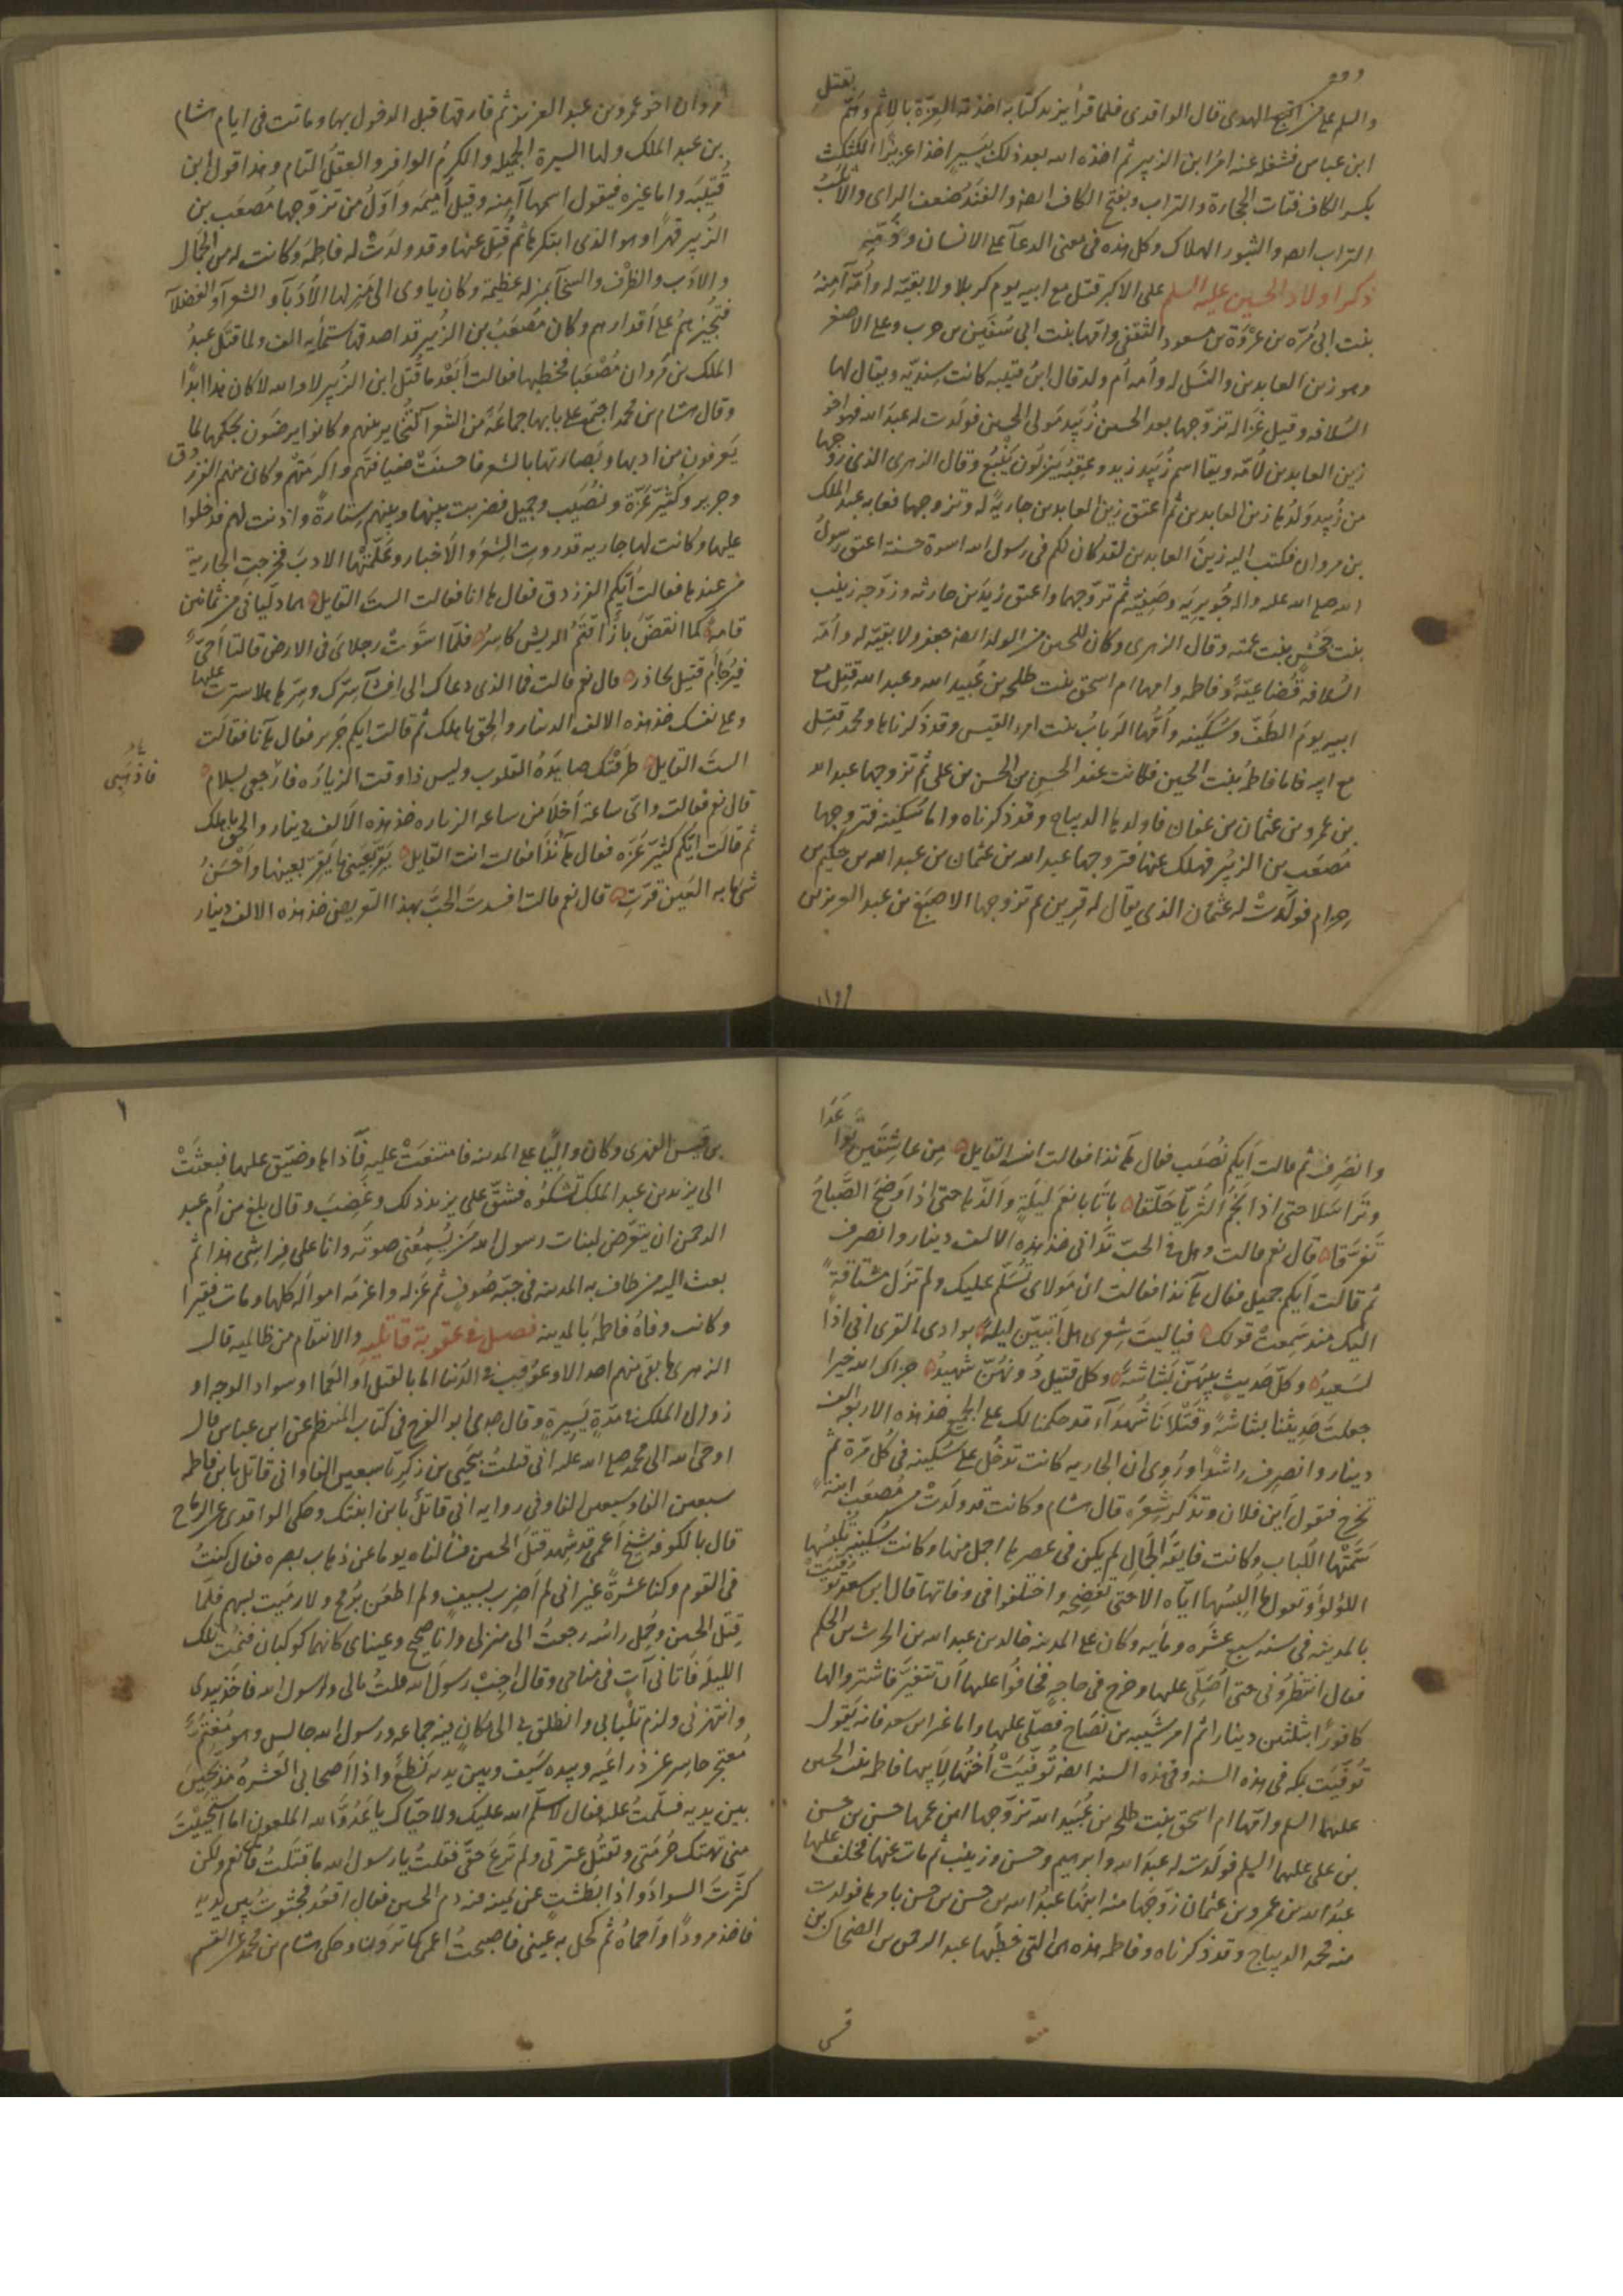 والسلم على من اتبع الهدى قال الواقدى فلما قرأ يزيد كتابه اخذته العزة بالاثم وهمّ بقتل
ابن عباس فشغله عنه امرُ ابن الزبير ثم اخذه الله بعد ذلك بيَسيرٍ اخذا عزيزًا الكثكث
بكسر الكاف فتات الحجارة والتراب وبفتح الكاف ايضا والفَنَد ضعف الراى والاثلبُ
التراب ايضا والثبور الهلاك وكل هذه فى معنى الدعآ على الانسان وذمّه
ذكر اولاد الحسين عليه السلم على الاكبر قتل مع ابيه يوم كربلا ولا بقيّه له وأمّه آمِنةُ
بنت ابى مُرّه بن عُرْوَة بن مسعود الثقفى وامّها بنت ابى سُفيٰن بن حرب وعلى الاصغر
وهو زين العابدين والنَسل له وأمه أم ولد قال ابنُ قتيبه كانت سِنديّه ويقال لها
السُلافه وقيل غَزاله تزوّجها بعد الحسين زُبَيد مَولى الحسين فولدت له عبدَ الله فهو اخو
زين العابدين لأمّه ويقا اسم زُبَيد زيد وعَقِبهُ يَنزلُون يَنْبُعَ وقال الزهرى الذى زوّجها
من زُبيد وَلدُها زين العابدين ثم اعتق زين العابدين جاريةً له وتزوجها فعابه عبد الملك
بن مروان فكتب اليه زينُ العابدين لقد كان لكم فى رسول الله اسوة حسنة اعتق رسولُ
الله صلى الله عليه واله جُوَيريَه وصَفِيّه ثم تزوّجهما واعتق زَيدَ بن حارثه وزوّجه زينب
بنت جَحْشٍ بنت عمّته وقال الزهرى وكان للحسين من الولد ايضا جعفر ولا بقيّه له وأمّه
السُلافة قُضاعيّةٌ وفاطمه وامها ام اسحق بنت طلحه بن عُبيد الله وعبد الله قتِل مع
ابيه يومَ الطَفّ وسُكَينه وأمُّها الرَبابُ بنت امرء القيس وقد ذكرناها ومحمد قتِل
مع ابيه فاما فاطمةُ بنت الحسين فكانت عند الحسن بن الحسن بن على ثم تزوجها عبد الله
بن عمرو بن عثمان بن عفان فاولدها الديباج وقد ذكرناه واما سُكَينه فتزوجها
مُصعَب بن الزبير فهلك عنها فتزوجها عبد الله بن عثمان بن عبد الله بن حكيم بن
حِزام فولَدَتْ له عثمانَ الذى يقال له قرِين ثم تزوجها الاصبَغ بن عبد العزيز بن
مروان اخو عمر بن عبد العزيز ثم فارقها قبل الدخول بها وماتت فى ايام هشام
بن عبد الملك ولها السيرة الجميله والكرمُ الوافر والعقلُ التام وهذا قول ابن
قُتَيْبَه واما غيره فيقول اسمها آمنه وقيل أميمَه واوّلُ من تزوّجها مُصعَب بن
الزبير قهرًا وهو الذى ابتكرها ثم قُتِل عنها وقد ولدَتْ له فاطمَه وكانت له من الجمال
والادَب والظرف والسخآ بمنزله عظيمة وكان ياوى الى منزلها الأُدَبآ والشعرآ والفضلآ
فتجيزهُم على أقدارهم وكان مُصعَبُ بن الزُبير قد اصدقها ستمأيه الف ولما قَتَل عبدُ
الملك بن مَروان مُصْعَبا فخطبها فقالت أبَعْدَ ما قَتَل ابن الزُبير لا والله لا كان هذا ابدًا
وقال هشام بن محمد اجتمع على بابها جماعةٌ من الشعرآ لتُخاير بينهم وكانوا يرضَون بحكمها لما
يَعرفون من ادبها وبَصارتها بالشعر فاحسنَتْ ضيافتَهم واكرمَتهم وكان منهم الفرزدق
وجرير وكُثَيّرُ عَزّة ونُصَيب وجميل فضربت بينها وبينهم سِتارةً واذنت لهم فدخلوا
عليها وكانت لها جاريه قد روت الشِعْرَ والاَخبار وعَلّمَتْها الادبَ فخرجتِ الجارية
من عندها فقالت أيّكم الفرزدق فقال ها انا فقالت الستَ القايل هما دلّياني من ثمانين
قامةً كما انقضّ بازٌ اقتَمُ الريش كاسِرُه فلمّا استَوتْ رجلاىَ فى الارض قالتا احىٌّ
يُرَجّا أم قتيل نحاذره قال نعم قالت فما الذى دعاك الى افشآ سِرّك وسِرّها هلا سترت عليها
وعلى نفسك خذ هذه الالف الدينار والحق باهلك ثم قالت ايكم جَرير فقال هآنا فقالت
الستَ القايل طرقَتْك صايدَةُ القلوب وليس ذا وقت الزيارَه فارجعى بسلام
فاذهبى
قال نعم فقالت واىّ ساعة أحْلا من ساعه الزياره خذ هذه الاَلف دينار والحق باهلك
ثم قالَت ايّكم كثيّر عَزّه فقال هآنذا فقالت انت القايل يَقَرّ بعَينى ما يَقِرّ بعينها وأحْسَنُ
شئ ما به العَين قرّتِ قال نعم قالت افسدتَ الحبّ بهذا التعريض خذ هذه الالف دينار
وانصَرِف ثم قالت أيكم نُصَيب فقال هآنذا فقالت انت القايل مِن عاشِقَين تَواعَدا
وتَراسَلا حتى اذا نجْمُ الثريّا حَلّقا باتا بانعَم ليلَةٍ وألذّها حتى اذا وَضحَ الصَباحُ
تَفرّقا قال نعم قالت وهل فى الحبّ تَدانى خذ هذه الالف دينار وانصرف
ثم قالت أيكم جميل فقال هآنذا فقالت انّ مَولاى تُسَلّم عليك ولم تزَل مشتاقةً
اليك منذ سَمِعتْ قولك فيا ليتَ شِعرى هل أبيتَنّ ليلةً بوادى القرى انى اذاً
لسَعيدُ وكلّ حَديثٍ بينهُنّ بَشاشةٌ وكل قتيل دُونهُنّ شَهيدُ جزاك الله خيرا
جعلتَ حَديثنا بشاشةً وقَتْلانا شُهدَآء قد حكمنا لك على الجميع خذ هذه الاربعة الف
دينار وانصرِف راشدًا ورُوِى ان الجاريه كانت تدخُل على سُكَينه فى كُل مرّة ثم
تخرج فتقول أين فلان وتذكر شِعرَه قال هشام وكانت قد ولَدتْ من مُصعَب ابنةً
سَمَّتْها اللَباب وكانت فايقةَ الجَمال لم يكن فى عصرها اجمل منها وكانت سُكَينة تُلبسُها
اللؤلؤ وتعول ما اُلبِسُها اياه الا حتى تفضحه واختلفوا فى وفاتها قال ابن سعد تُوفيَتْ
بالمدينه فى سنه سبع عشره ومأيه وكان على المدينه خالد بن عبد الله بن الحرث بن الحكم
فقال انتظرُونى حتى أُصَلّى عليها وخرج فى حاجةٍ فخافُوا عليها أن تتغيّرَ فاشتروا لها
كافورًا بثلثين دينارا ثم امر شَيبه بن نَصَاح فصَلّى عليها واما غير ابن سعد فانه يَقول
تُوفّيَت بمكه فى هذه السنه وفى هذه السنه ايضا تُوفّيَتْ أختُها لاَبيها فاطمه بنت الحسين
عليهما السلم وامّها ام اسحق بنت طلحه بن عُبيد الله تزوّجها ابن عمها حسن بن حسن
بن على عليهما السلم فولَدت له عبدَ الله وابراهيم وحسن وزينَب ثم مات عنها فخلف عليها
عبدُ الله بن عمرو بن عثمان زوّجَها منه ابنُها عبدُ الله بن حسن بن حسن بامرها فولدت
منه محمد الديباج وقد ذكرناه وفاطمه هذه هى التى خطبَها عبد الرحمن بن الضحاك بن
بن قيس الفهرى وكان واليًا على المدينه فامتنعَتْ عليه فآذاها وضَيّق عليها فبعثَتْ
الى يزيد بن عبد الملك تشكُوه فشقّ على يزيد ذلك وغَضِبَ وقال بلغ من أم عبد
الرحمن ان يتعّرض لبنات رسول الله مَن يُسمِعُنى صوتَه وانا على فِراشى هذا ثم
بعث اليه من طاف به المدينه فى جبّه صُوفٍ ثم عزله واغرَمه اموالَه كلها ومات فقيرا
وكانت وفاةُ فاطمَةَ بالمدينه فصل فى عقوبة قاتليه والانتقام من ظالميه قال
الزهرى ما بقى منهم احد الا وعُوقِب فى الدُنيا اما بالقتل او العَما او سواد الوجه او
زوال الملك فى مُدّةٍ يَسيرةٍ وقال جدى ابو الفرج فى كتاب المنتظم عن ابن عباس قال
اوحى الله الى محمد صلى الله عليه انى قتلتُ بيَحيَى بن زكريا سبعين الفا وانى قاتل بابن فاطمه
سبعين الفا وسبعين الفا وفى روايه انى قاتلٌ بابن ابنتك وحكى الواقدى عن الرماح
قال بالكوفه شيخ اَعمى قد شهد قتلَ الحسين فسألناه يوما عن ذهاب بصره فقال كنتُ
فى القوم وكنا عشرةً غير انى لم أضرِب بسيفٍ ولم اطعَن برُمح ولا رمَيت بسهم فلمّا
قتِلَ الحسين وحُمل راسُه رجعتُ الى منزلى وانا صحيح وعيناى كانهما كوكبان فنمتُ تلك
الليلَه فاَتانى آتٍ فى منامى وقال اَجِبْ رسولَ الله قلتُ مالى ولرسول الله فاخذ بيدى
وانتهرنى ولزم تلبابى وانطلق بى الى مكان فيه جماعه ورسول الله جالس وهو مُغتمٌّ
مُعتجر حاسِر عن ذراعَيه وبيده سَيف وبين يديه نَطْعٌ واذا أصحابى العَشرهُ مذبحِين
بين يديه فسلّمتُ عليه فقال لا سلّم الله عليك ولا حيّاك يا عَدُوَّ الله الملعون اما استحيَيْتَ
منى تهتك حُرمَتى وتقتُل عترتى ولم تَرعَ حقّى فقلتُ يا رسول الله ما قتَلتُ قال نعم ولكن
كثّرتَ السوادَ واذا بطَشْتٍ عن يمينه فيه دم الحسين فقال اقعُد فجثوتُ بين يديه
فاخذ مِرودًا وأحماهُ ثم كحل به عينى فاصبحتُ اعمى كما ترَون وحكى هشام بن محمد عن القسم